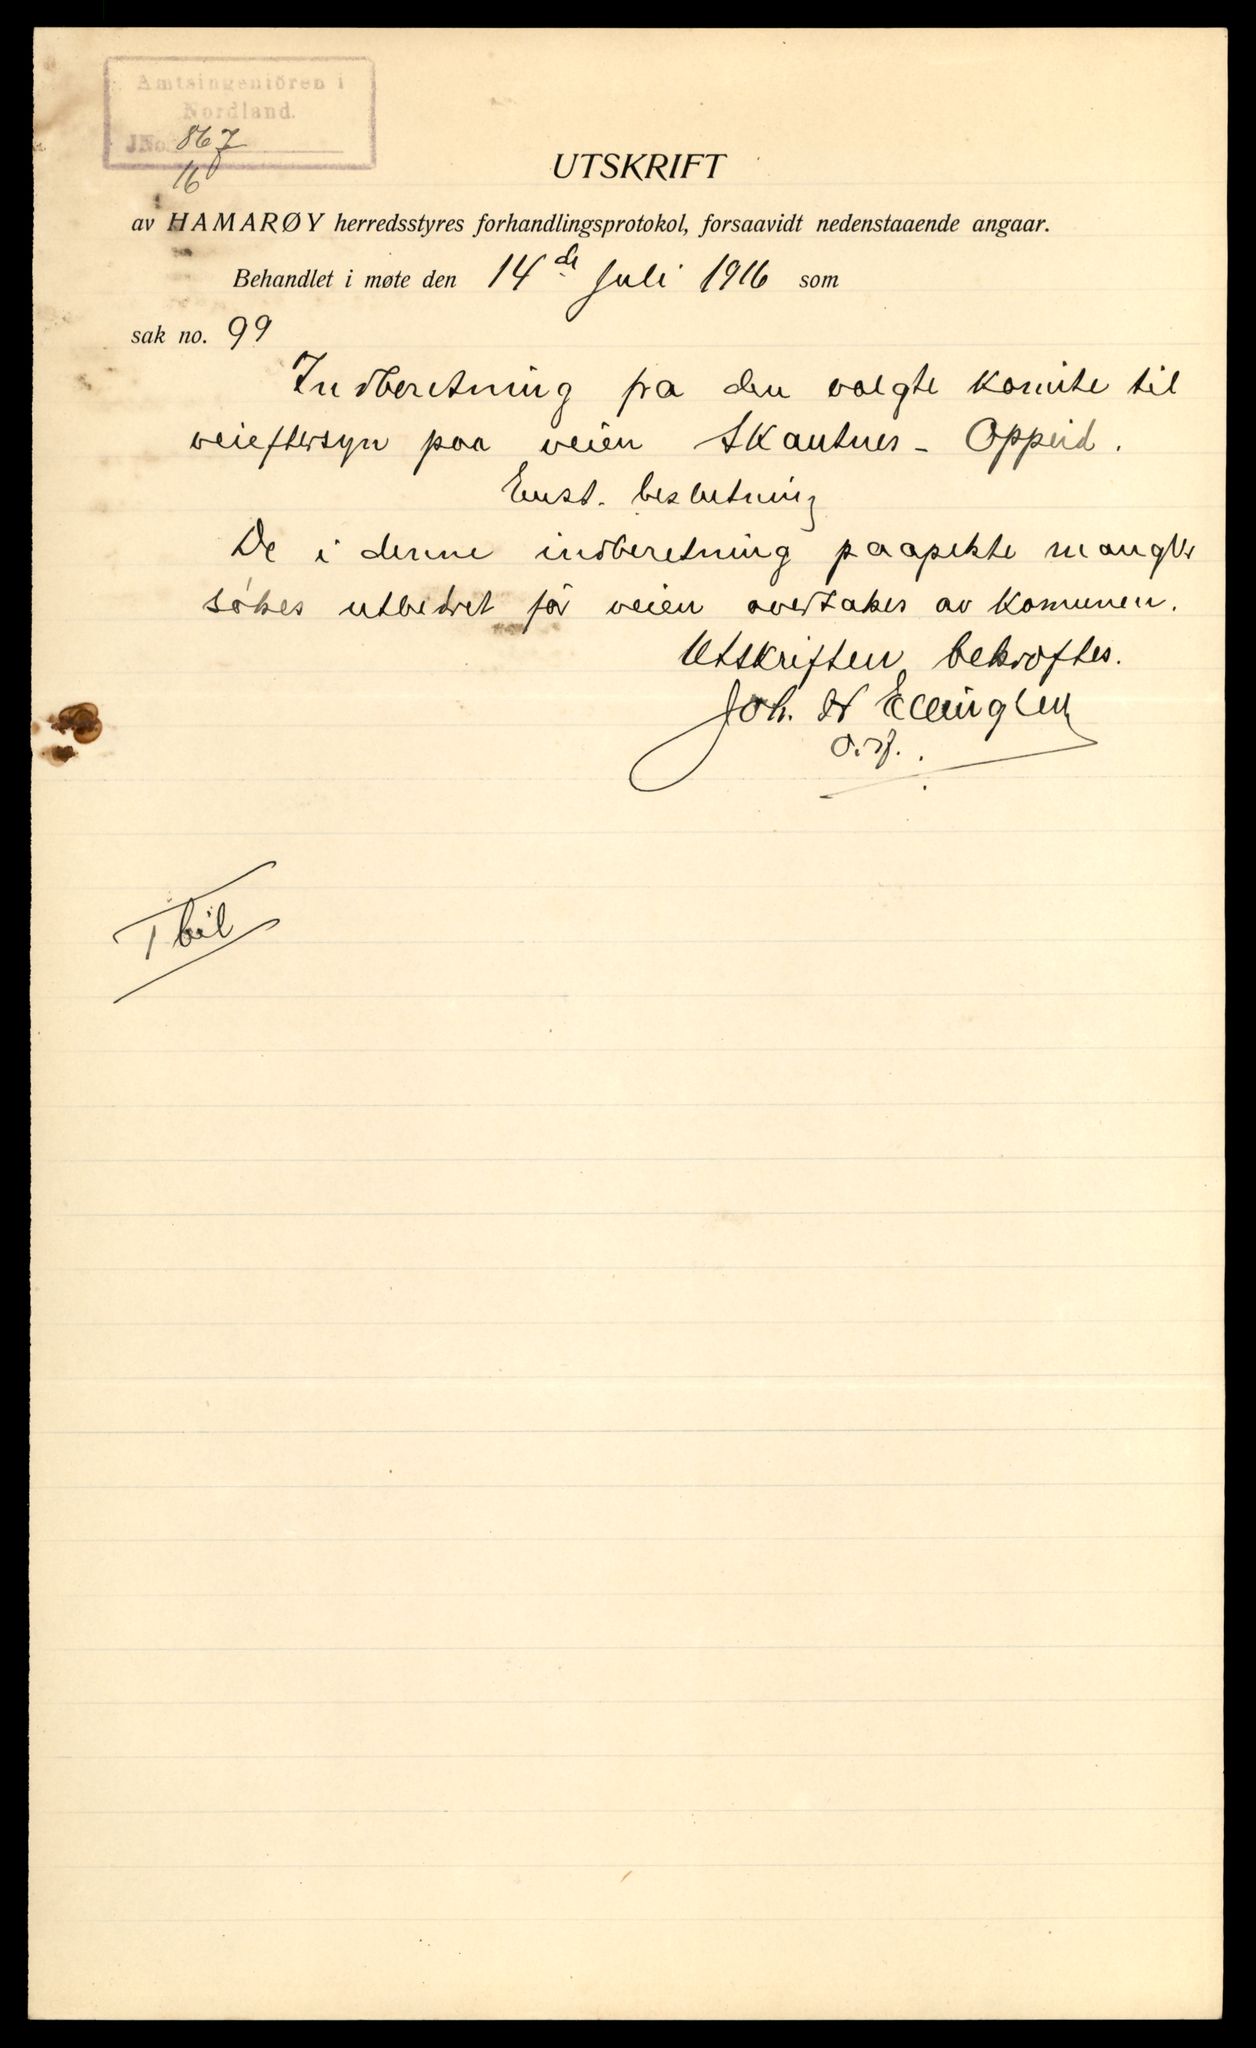 Amtsingeniören i
Nordland.
JNo. 867
16
UTSKRIFT
av HAMARØY herredsstyres forhandlingsprotokol, forsaavidt nedenstaaende angaar.
Behandlet i møte den 14de Juli 1916 som
sak no. 99
Indberetning fra den valgte komite til
veieftersyn paa veien Skautnes - Oppeid.
Enst. beslutning
De i denne indberetning paapekte mangler
søkes utbedret før veien overtakes av komunen.
Utskriften bekræftes.
Joh. N Ellingsen
o.rf.
1 bil